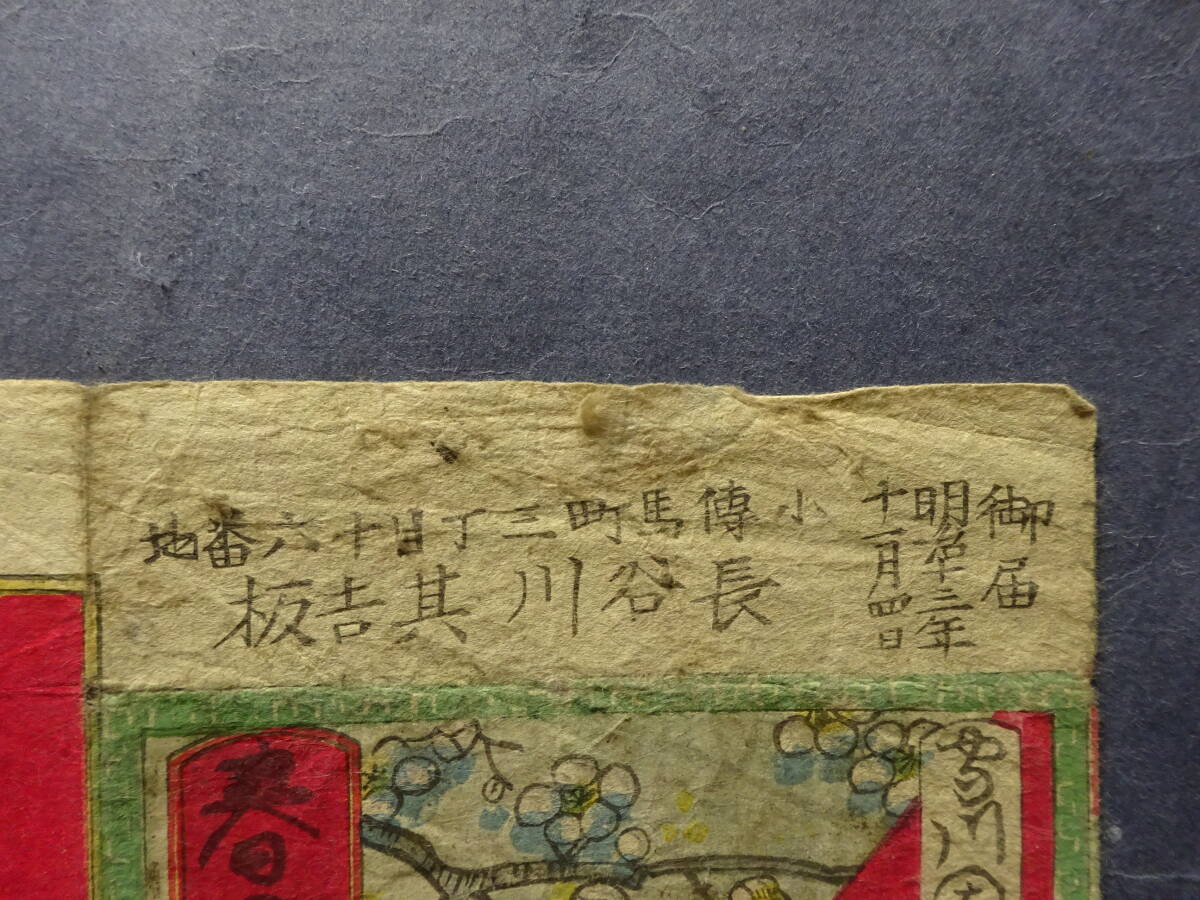 御届
明治十二年
十一月四日
小傳馬町三丁目十六番地
長谷川其吉板
春